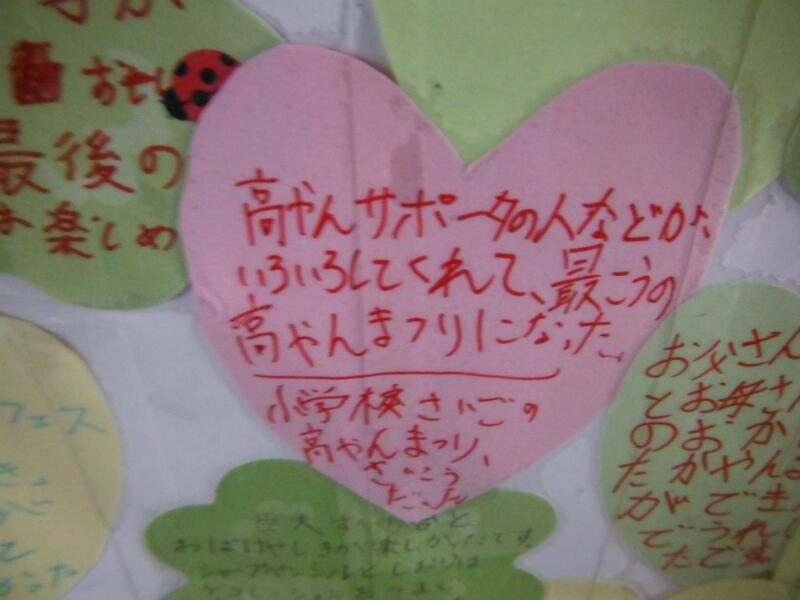 最後の
お楽しめ
高やんサポータの人などが、
いろいろしてくれて、最こうの
高やんまつりになった。
小学校さいごの
高やんまつり、
さいこう
だった
お父さん
とお母さん
のおか
たかやんま
ができ
でうれし
たです
フェス
巨大すべり台と
おばけやしきが楽しかったです
シャープペンシルとしおりは